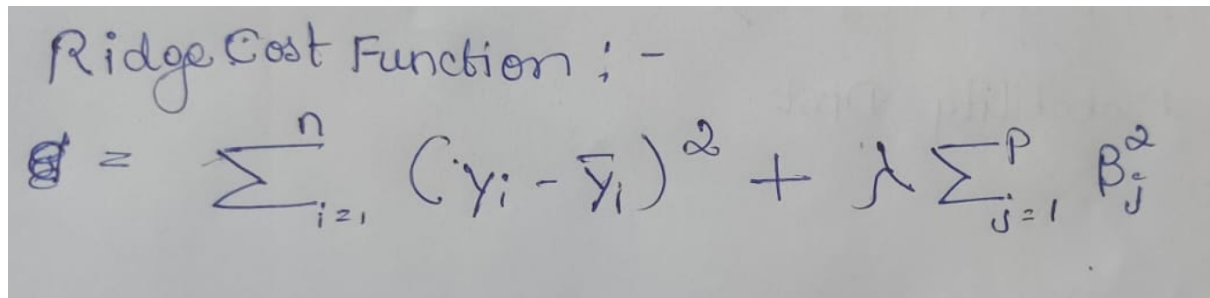 Ridge Cost Function : -
= ∑ⁿᵢ₌₁ (yᵢ - ȳᵢ)² + λ ∑ᵖⱼ₌₁ βⱼ²